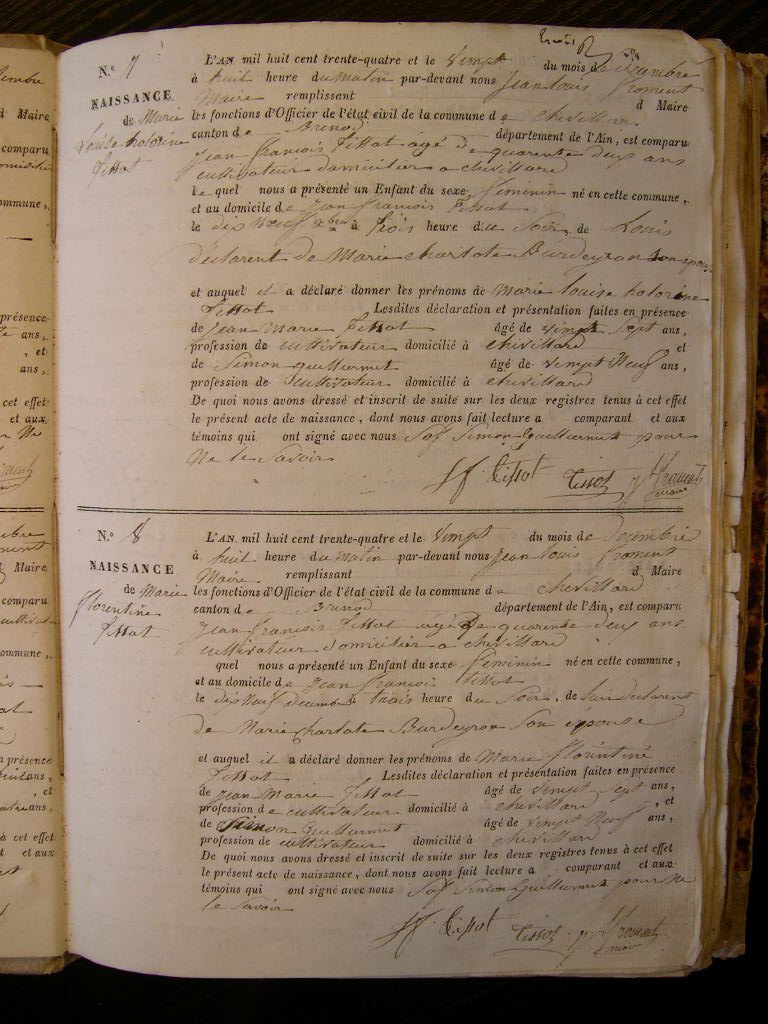 N.° 7
NAISSANCE
de Marie
Louise holorine
Tissot
L'AN mil huit cent trente-quatre et le vempt du mois de decembre
à huit heure du matin par-devant nous Jean louis froment
Maire remplissant d Maire
les fonctions d'Officier de l'état civil de la commune de chevillard
canton de Brenod département de l'Ain, est comparu
Jean françois Tissot âgé de quarente deux ans
cultivateur domicilier a chevillard
le quel nous a présenté un Enfant du sexe feminin né en cette commune,
et au domicile de Jean francois Tissot
le dix neuf xbre à heure du Soir, de Louis
déclarent de Marie charlote Burdeyron son epouse
et auquel il a déclaré donner les prénoms de marie louise holorine
Tissot Lesdites déclaration et présentation faites en présence
de Jean Marie Tissot âgé de vempt sept ans,
profession de cultivateur domicilié à chevillard et
de Simon guillermet âgé de vempt Neuf ans,
profession de Cultivateur domicilié à chevillard
De quoi nous avons dressé et inscrit de suite sur les deux registres tenus à cet effet
le présent acte de naissance, dont nous avons fait lecture a comparant et aux
témoins qui ont signé avec nous Sof Simon Guillermet pour
Ne le Savoir
Jf. Tissot Tissot Jl froment
maire
N.° 8
NAISSANCE
de Marie
florentine
Tissot
L'AN mil huit cent trente-quatre et le vempt du mois de decembre
à huit heure du matin par-devant nous Jean louis froment
Maire remplissant d Maire
les fonctions d'Officier de l'état civil de la commune de chevillard
canton de Brenod département de l'Ain, est comparu
Jean françois Tissot agé de quarente deux ans
cultivateur domicilier a chevillard
quel nous a présenté un Enfant du sexe feminin né en cette commune,
et au domicile de Jean francois Tissot
le dix Neuf decembre à trois heure du Soir, de lui declarent
de Marie charlote Burdeyron Son epouse
et auquel il a déclaré donner les prénoms de Marie florentine
Tissot Lesdites déclaration et présentation faites en présence
de Jean Marie Tissot âgé de vempt sept ans,
profession de cultivateur domicilié à chevillard, et
de Simon Guillermet âgé de vempt Neuf ans,
profession de cultivateur domicilié à chevillard
De quoi nous avons dressé et inscrit de suite sur les deux registres tenus à cet effet
le présent acte de naissance, dont nous avons fait lecture a comparant et aux
témoins qui ont signé avec nous Sof Simon Guillermet pour Ne
le Savoir
Jf. Tissot Tissot Jl froment
maire